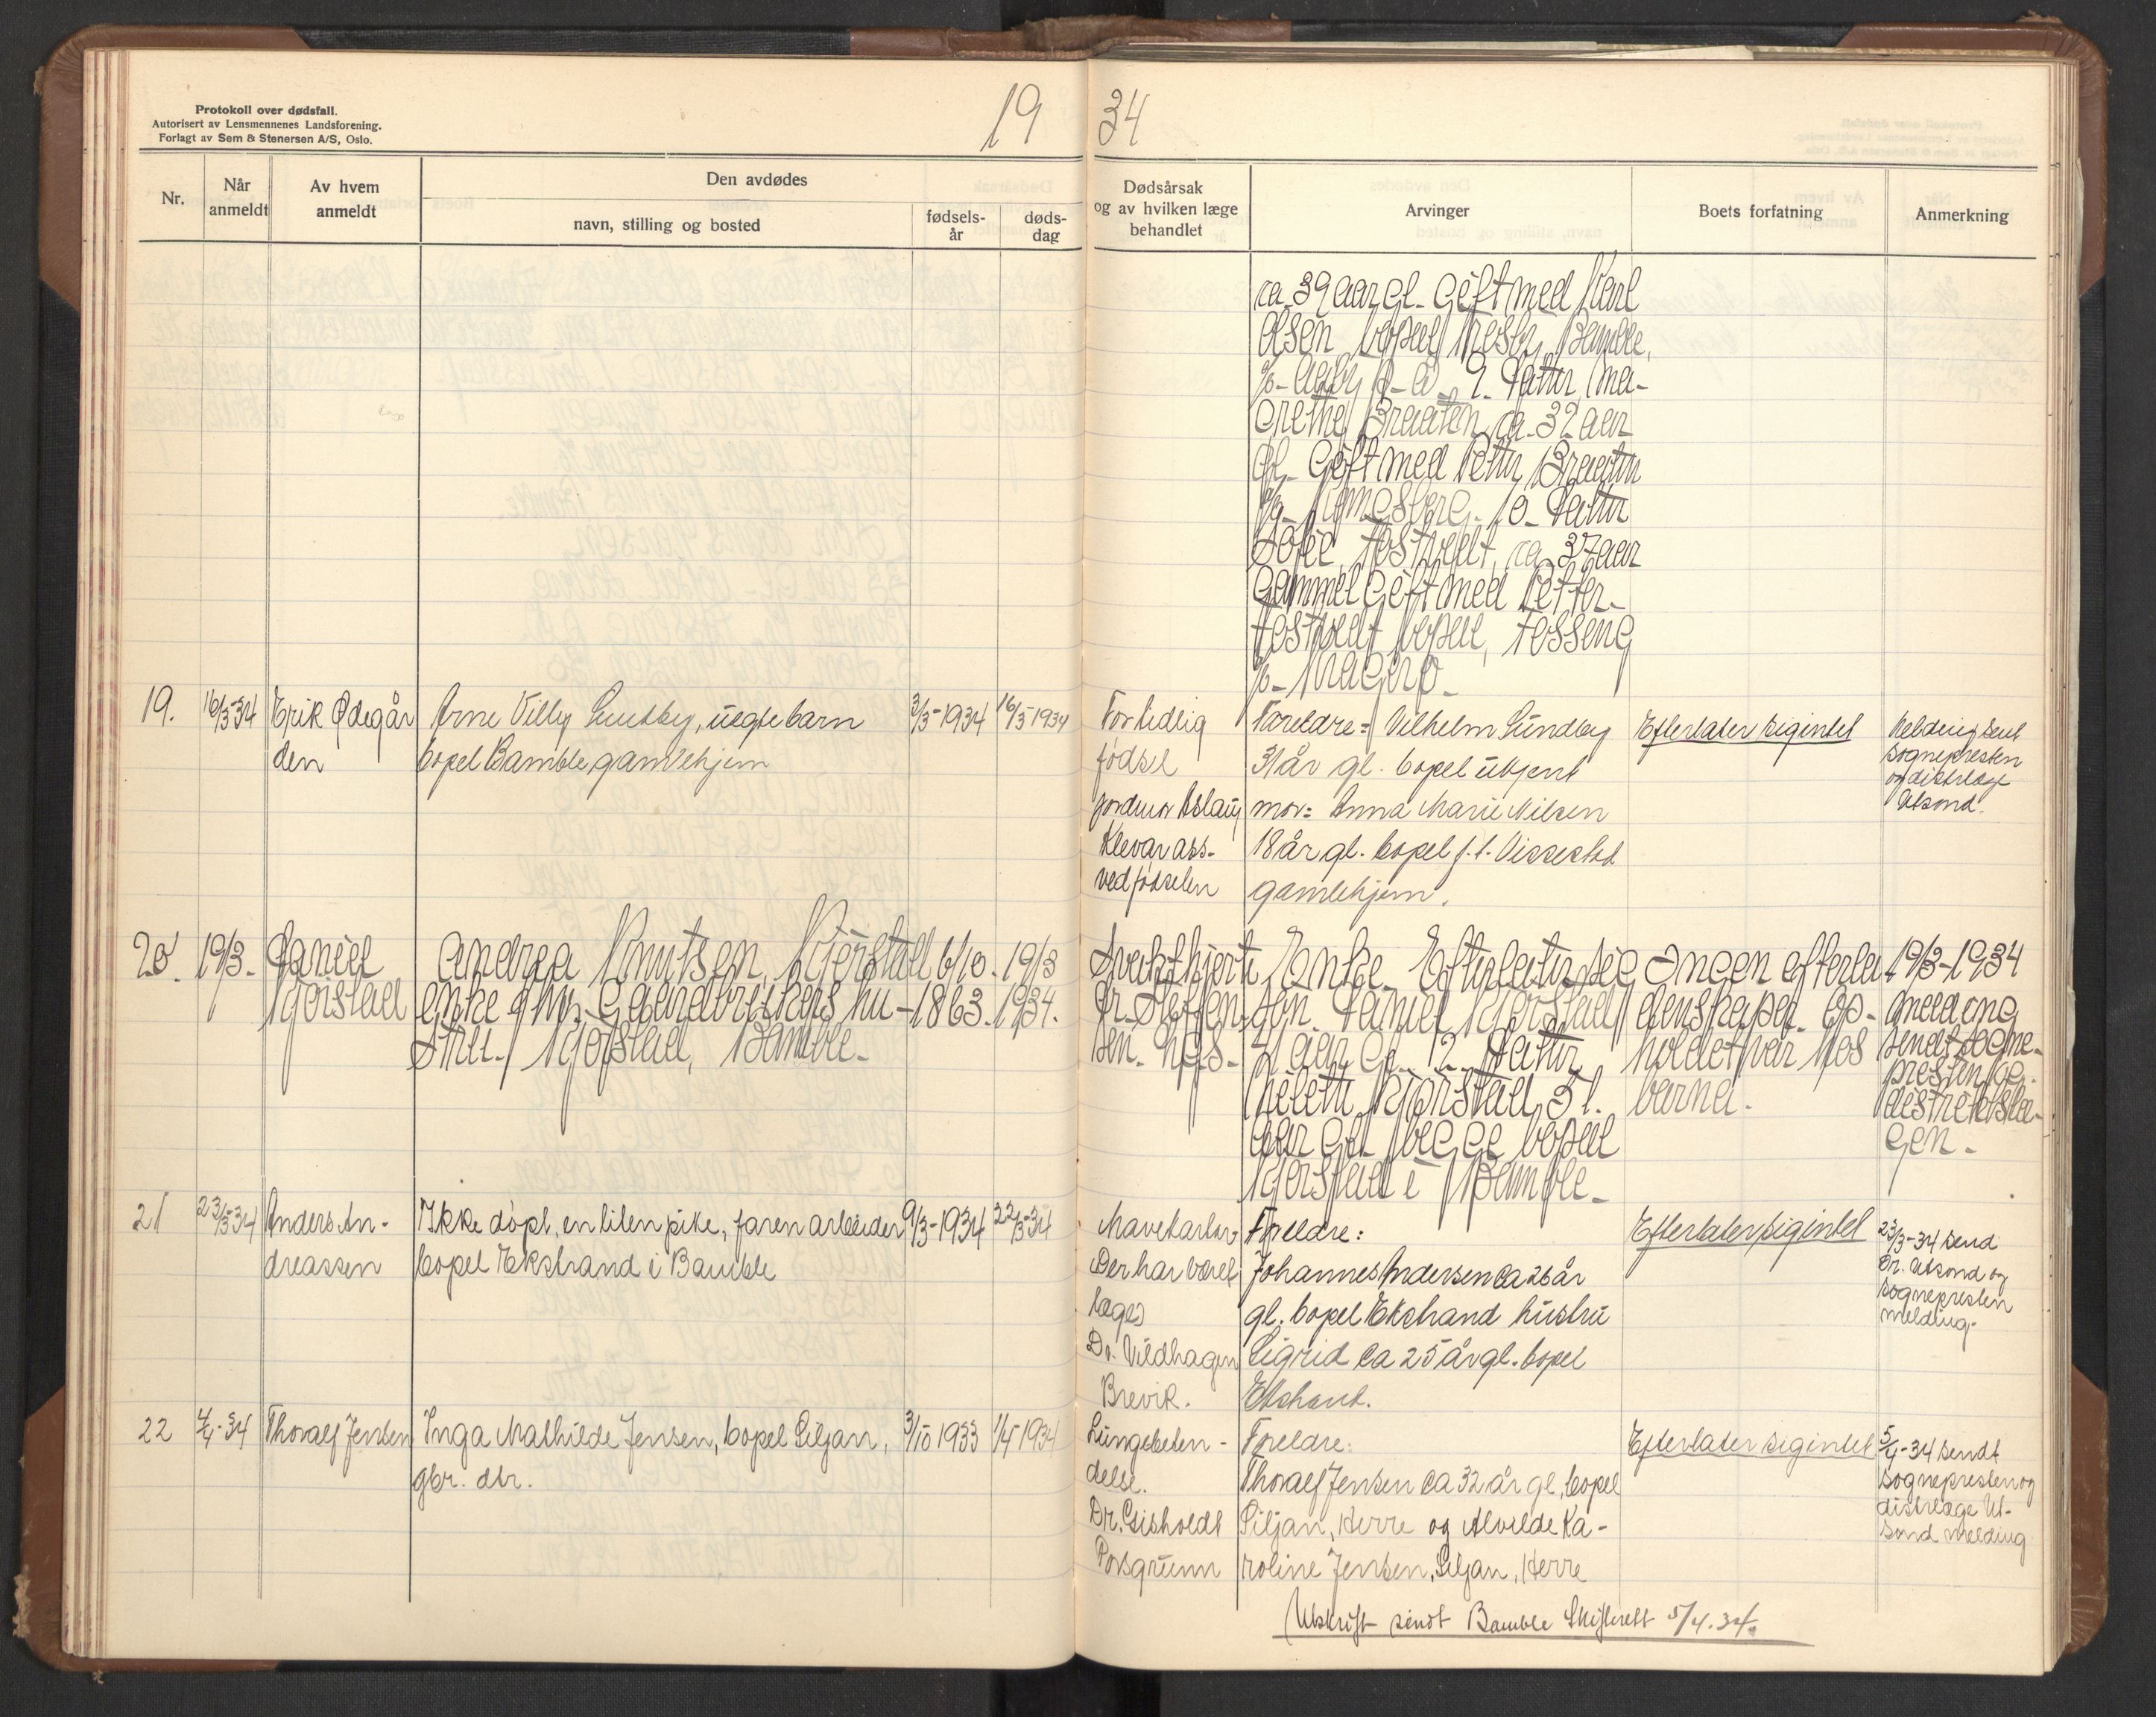 Protokoll over dødsfall.
Autorisert av Lensmennenes Landsforening.
Forlagt av Sem & Stenersen A/S, Oslo.
19 34
Nr.
Når
anmeldt
Av hvem
anmeldt
Den avdødes
navn, stilling og bosted
fødsels-
år
døds-
dag
Dødsårsak
og av hvilken læge
behandlet
Arvinger
Boets forfatning
Anmerkning
ca. 39 aar gl. Gift med Karl
Olsen bopæl Bamble,
9. Datter Ma-
grethe Braaten ca. 32 aar
gl. Gift med Petter Braaten
10. Datter
Sofie Tostvedt, ca. 37 aar
Gammel Gift med Petter
Tostvedt bopæl, Tosseng
19.
16/3-34
Erik Ødegår
den
Arne Villy Sundby, uegte barn
bopel Bamble gamlehjem
3/3-1934
16/3-1934
For tidlig
fødsel
jordmor Aslaug
Klevar ass.
ved fødselen
Foreldre: Vilhelm Sundby
31 år gl. bopel ukjent
mor: Anna Marie Nilsen
18 år gl. bopel f.t. Vissestad
gamlehjem.
Efterlater sig intet
Melding sent
sognepresten
og distrlæge
Utsond.
20.
19/3.
Daniel
Kjørstad
Andrea Knutsen, Kjørstad
enke efter Gaardbrukers hu-
stru. Kjørstad, Bamble.
6/10.
1863.
19/3
1934.
Svakt hjerte
Dr. Steffen-
sen.
Enke. Efterlater sig
søn. Daniel Kjørstad
aar gl. 2. Datter
Kjørstad, 51.
aar gl. begge bopæl
Kjørstad i Bamble.
Ingen efterla-
denskaper. Op-
holdet var hos
barna.
19/3-1934
melding
sendt sogne-
presten og
distriktslæ-
gen.
21
23/3-34
Anders An-
dreassen
Ikke døpt, en liten pike, faren arbeider
bopel Ekstrand i Bamble
9/3-1934
22/3-34
Mavekatar
Der har været
læge
Dr. Vildhagen
Brevik.
Foreldre:
Johannes Andersen ca 26 år
gl. bopel Ekstrand hustru
Sigrid ca 25 år gl. bopel
Ekstrand.
Efterlater sig intet
23/3-34 send
Dr. Utsond og
sognepresten
melding.
22
4/4-34
Thoralf Jensen
Inga Mathilde Jensen, bopel Siljan,
gbr. dtr.
3/10 1933
1/4 1934
Lungebeten-
delse.
Dr. Gisholdt
Porsgrunn
Foreldre:
Thoralf Jensen ca 32 år gl, bopel
Siljan, Herre og Alvilde Ka-
roline Jensen, Siljan, Herre
Efterlater sig intet
5/4-34 sendt
sognepresten og
distrlæge Ut-
sond melding
Utskrift sendt Bamble Skifterett 5/4.34.